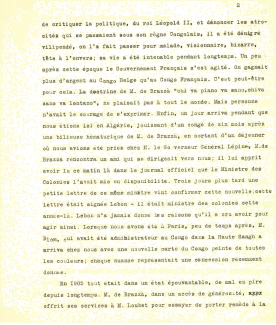 2
de critiquer la politique, du roi Léopold II, et dénoncer les atro-
cités qui se passaient sous son règne Congolais, il a été dénigré
vilipendé, on l'a fait passer pour malade, visionnaire, bizarre,
tête à l'envers; sa vie a été intenable pendant longtemps. Un peu
après cette époque le Gouvernement Français s'est agité. On gagnait
plus d'argent au Congo Belge qu'au Congo Français. C'est peut-être
pour cela. La doctrine de M. de Brazzà "chi va piano va sano, chi va
sano va lontano", ne plaisait pas à tout le monde. Mais personne
n'avait le courage de s'exprimer. Enfin, un jour arriva pendant que
nous étions ici en Algérie, jouissant d'un congé de six mois après
une bilieuse hématurique de M. de Brazzà, en sortant d'un déjeuner
où nous avions été priés chez M. le Gouverneur Général Lépine, M. de
Brazzà rencontra un ami qui se dirigeait vers nous; il lui apprit
avoir lu ce matin là dans le journal officiel que le Ministre des
Colonies l'avait mis en disponibilité. Trois jours plus tard une
petite lettre de ce même ministre vint confirmer cette nouvelle; cette
lettre était signée Lebon - il était ministre des colonies cette
année-là. Lebon n'a jamais donné les raisons qu'il a cru avoir pour
agir ainsi. Lorsque nous avons été à Paris, peu de temps après, M.
qui avait été administrateur au Congo dans la Haute Sangha
arriva chez nous avec une nouvelle carte du Congo peinte de toutes
les couleurs; chaque nuance représentait une concession récemment
donnée.
En 1905 tout était dans un état épouvantable, de mal en pire
depuis longtemps. M. de Brazzà, dans un accès de générosité,
offrit ses services à M. Loubet pour essayer de porter remède à la